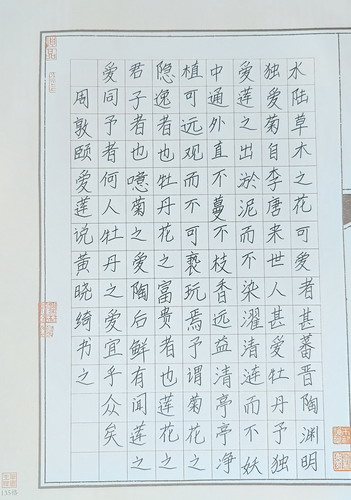 水陆草木之花可爱者甚蕃晋陶渊明
独爱菊自李唐来世人甚爱牡丹予独
爱莲之出淤泥而不染濯清涟而不妖
中通外直不蔓不枝香远益清亭亭净
植可远观而不可亵玩焉予谓菊花之
隐逸者也牡丹花之富贵者也莲花之
君子者也噫菊之爱陶后鲜有闻莲之
爱同予者何人牡丹之爱宜乎众矣
周敦颐爱莲说黄晓绮书之